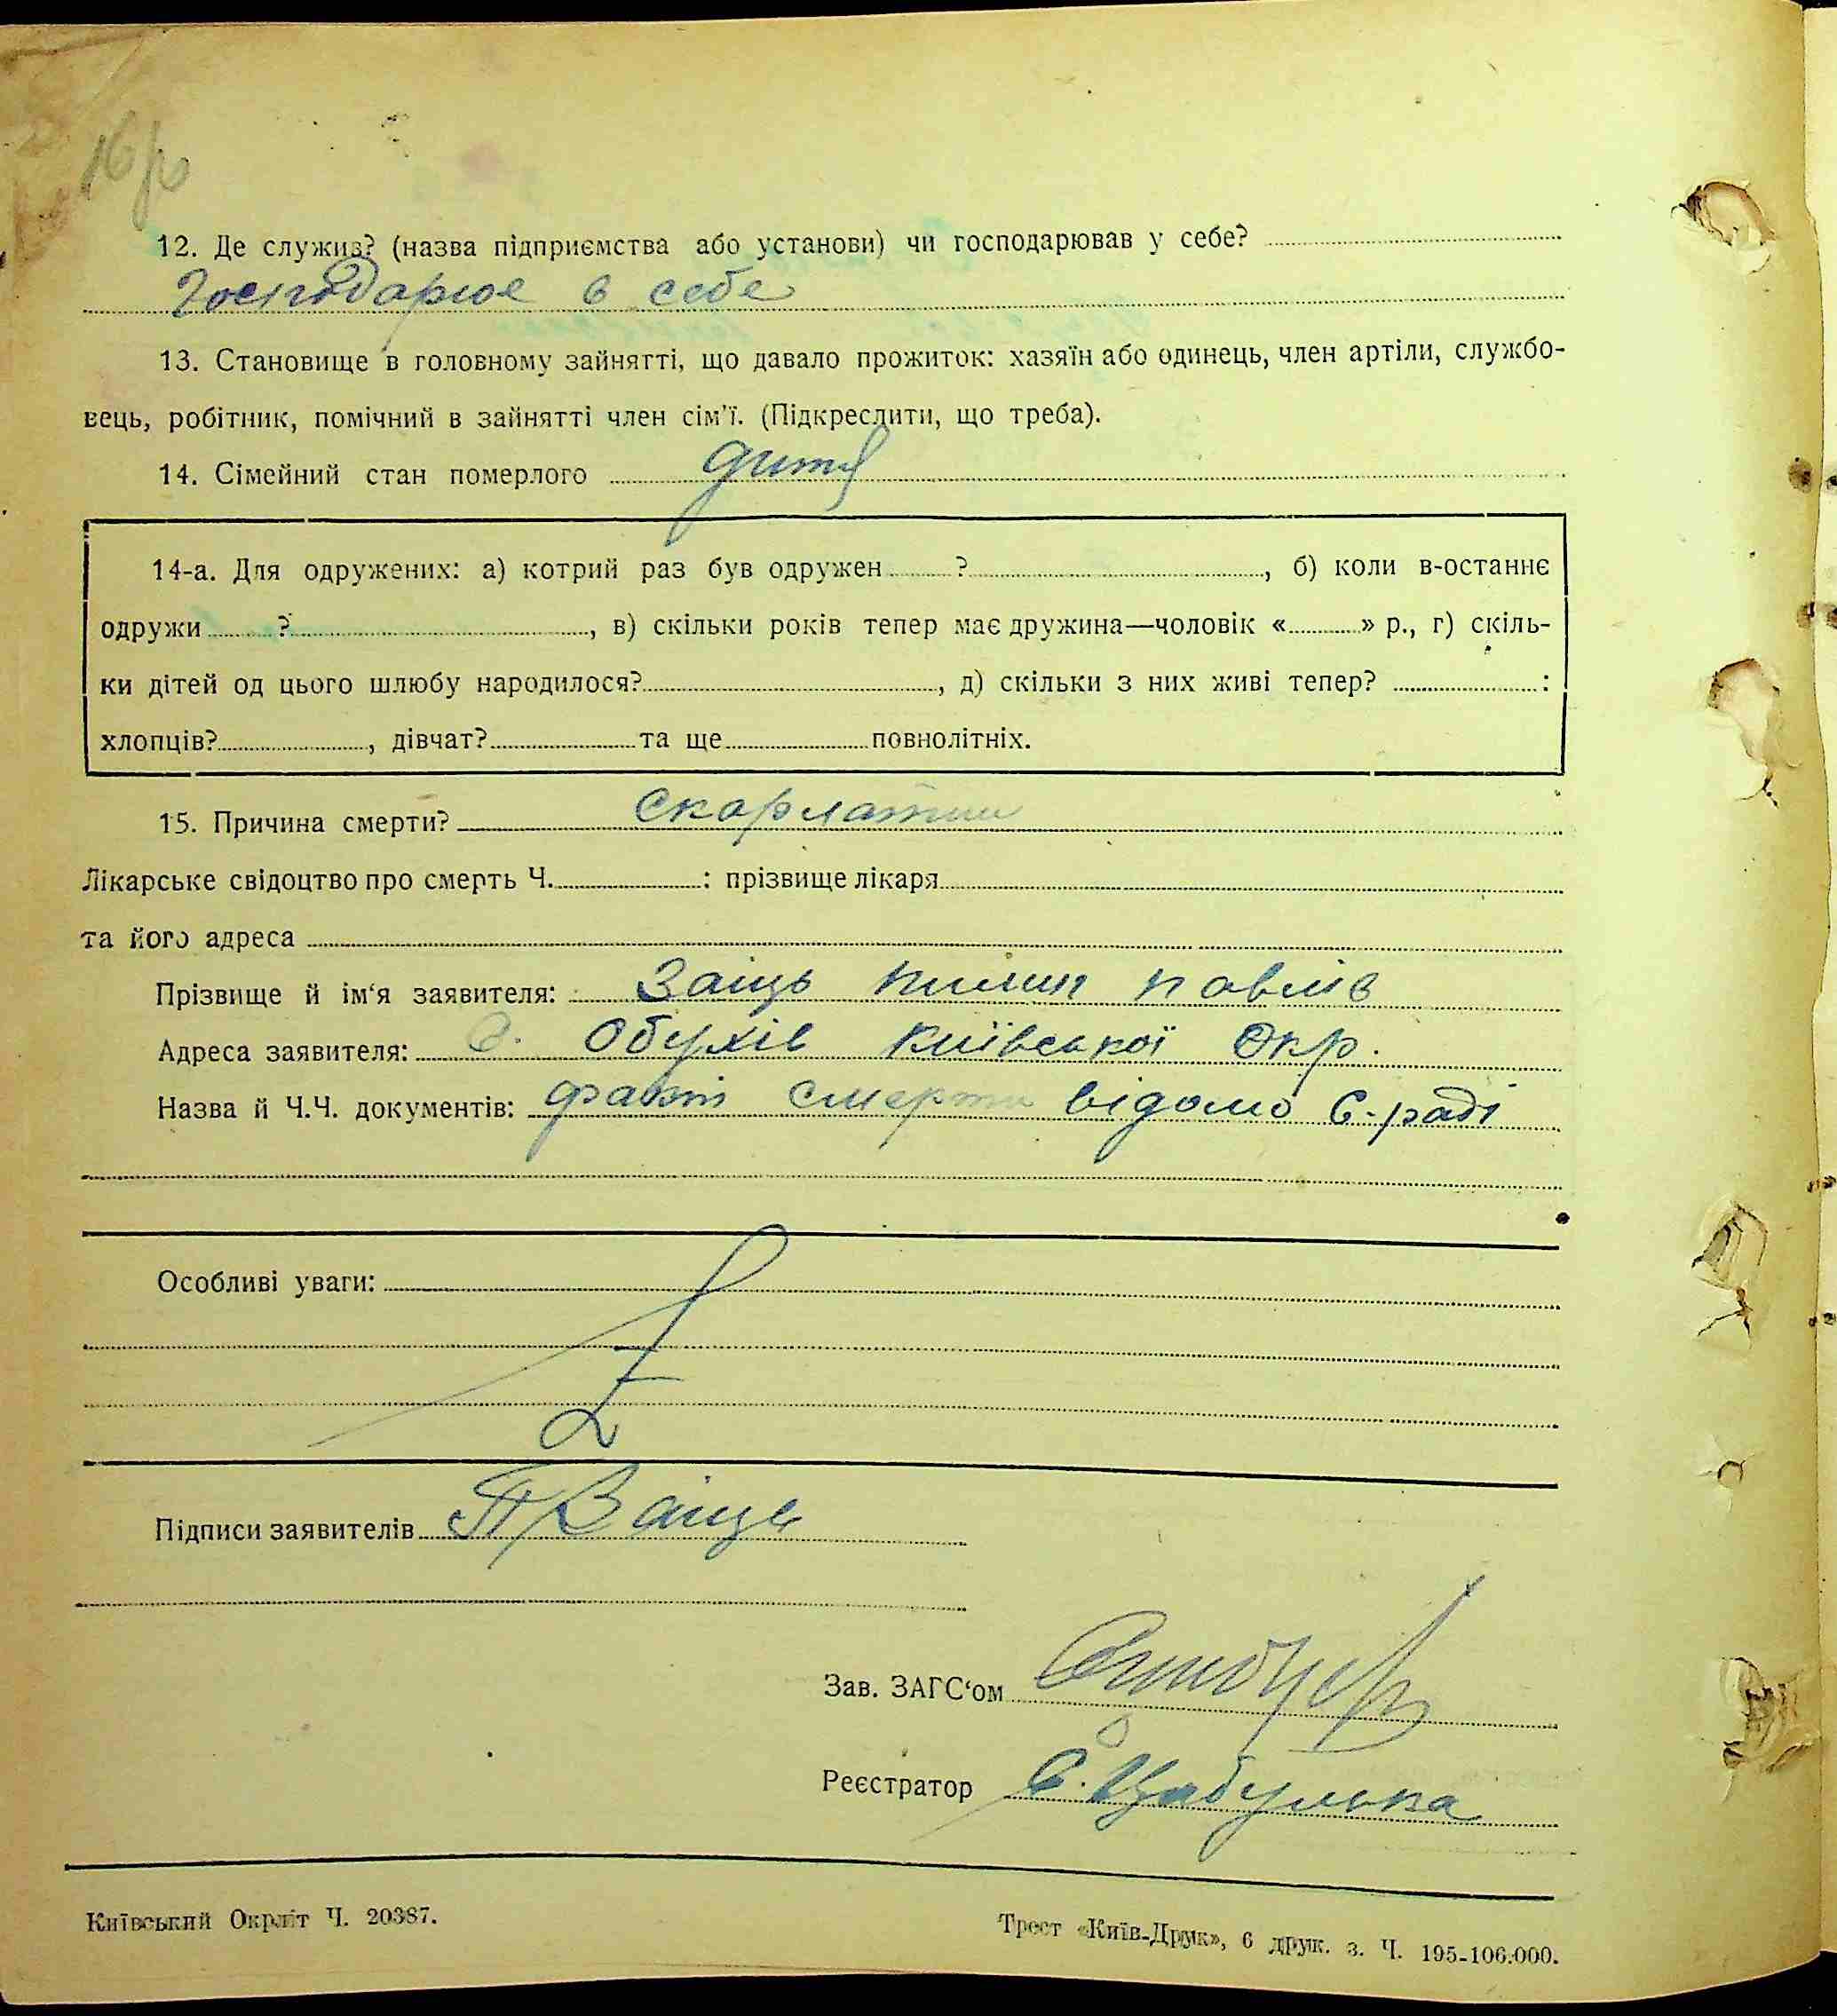 12. Де служив? (назва підприємства або установи) чи господарював у себе?
Господарює в себе
13. Становище в головному зайнятті, що давало прожиток: хазяїн або одинець, член артіли, службо-
вець, робітник, помічний в зайнятті член сім'ї. (Підкреслити, що треба).
14. Сімейний стан померлого дитя
14-а. Для одружених: а) котрий раз був одружен ?, б) коли в-останнє
одружи ?, в) скільки років тепер має дружина—чоловік «» р., г) скіль-
ки дітей од цього шлюбу народилося?, д) скільки з них живі тепер? :
хлопців?, дівчат? та ще повнолітніх.
15. Причина смерти? скарлатин
Лікарське свідоцтво про смерть Ч. : прізвище лікаря
та його адреса
Прізвище й ім'я заявителя: Заіць Пилип Павлів
Адреса заявителя: С. Обухів Київської Окр.
Назва й Ч.Ч. документів: факт смерти відомо С-раді
Особливі уваги:
Підписи заявителів П Заіць
Зав. ЗАГС'ом
Реєстратор Є. Цибулька
Київський Окрліт Ч. 20387.
Трест «Київ-Друк», 6 друк. з. Ч. 195-106.000.